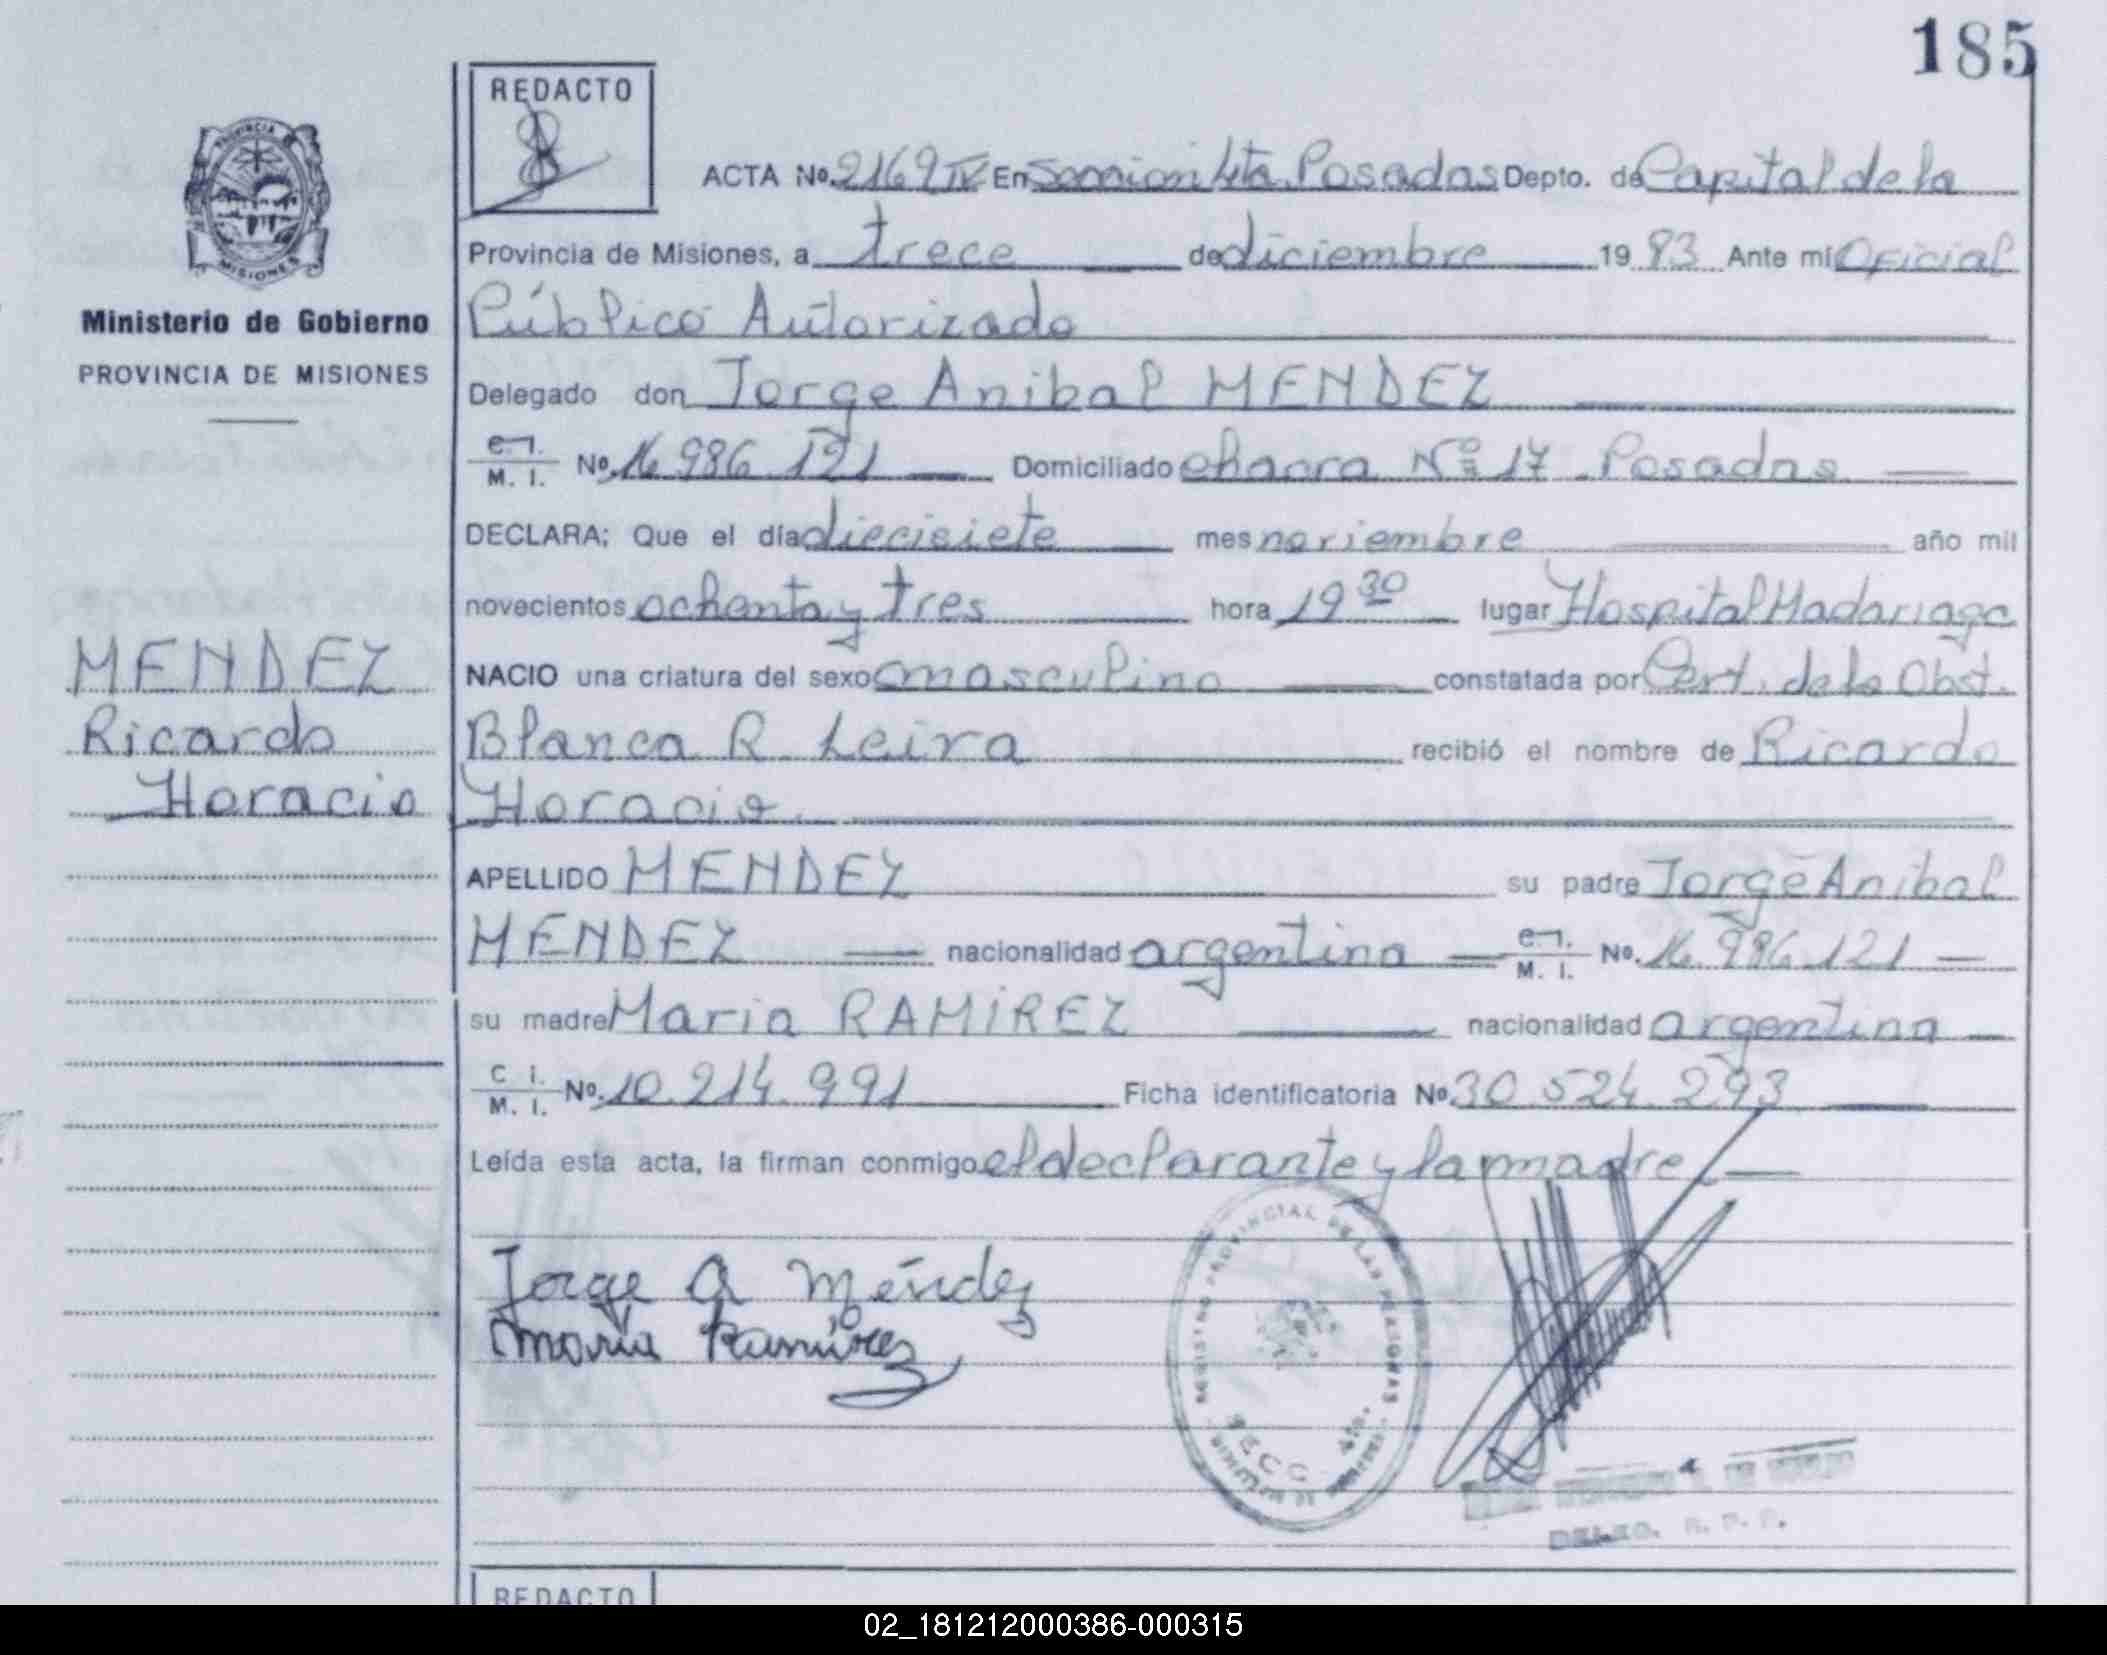 185
REDACTO
PROVINCIA DE
MISIONES
ACTA No. 2169 IV En Sección 4ta. Posadas Depto. de Capital de la
Provincia de Misiones, a trece de diciembre 1983 Ante mi Oficial
Ministerio de Gobierno
Público Autorizado
PROVINCIA DE MISIONES
Delegado don Jorge Anibal MENDEZ
C. I. / M. I. No. 16.986.121 Domiciliado chacra Nº 17 - Posadas
DECLARA; Que el día diecisiete mes noviembre año mil
novecientos ochenta y tres hora 19 30 lugar Hospital Madariaga
MENDEZ
NACIO una criatura del sexo masculino constatada por Cert. de la Obst.
Ricardo
Blanca R. Leiva recibió el nombre de Ricardo
Horacio
Horacio.
APELLIDO MENDEZ su padre Jorge Anibal
MENDEZ nacionalidad argentina C. I. / M. I. No. 16.986.121
su madre Maria RAMIREZ nacionalidad argentina
C. I. / M. I. No. 10.214.991 Ficha identificatoria No. 30.524.293
Leída esta acta, la firman conmigo el declarante y la madre.
Jorge A Méndez
Maria Ramirez
REGISTRO PROVINCIAL DE LAS PERSONAS
SECC. 4ta.
DELEG. R. P. P.
REDACTO
02_181212000386-000315